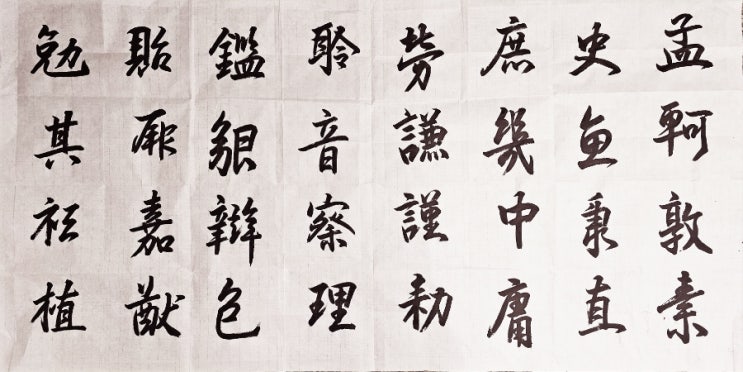 孟軻敦素
史魚秉直
庶幾中庸
勞謙謹勑
聆音察理
鑑貌辯色
貽厥嘉猷
勉其祗植